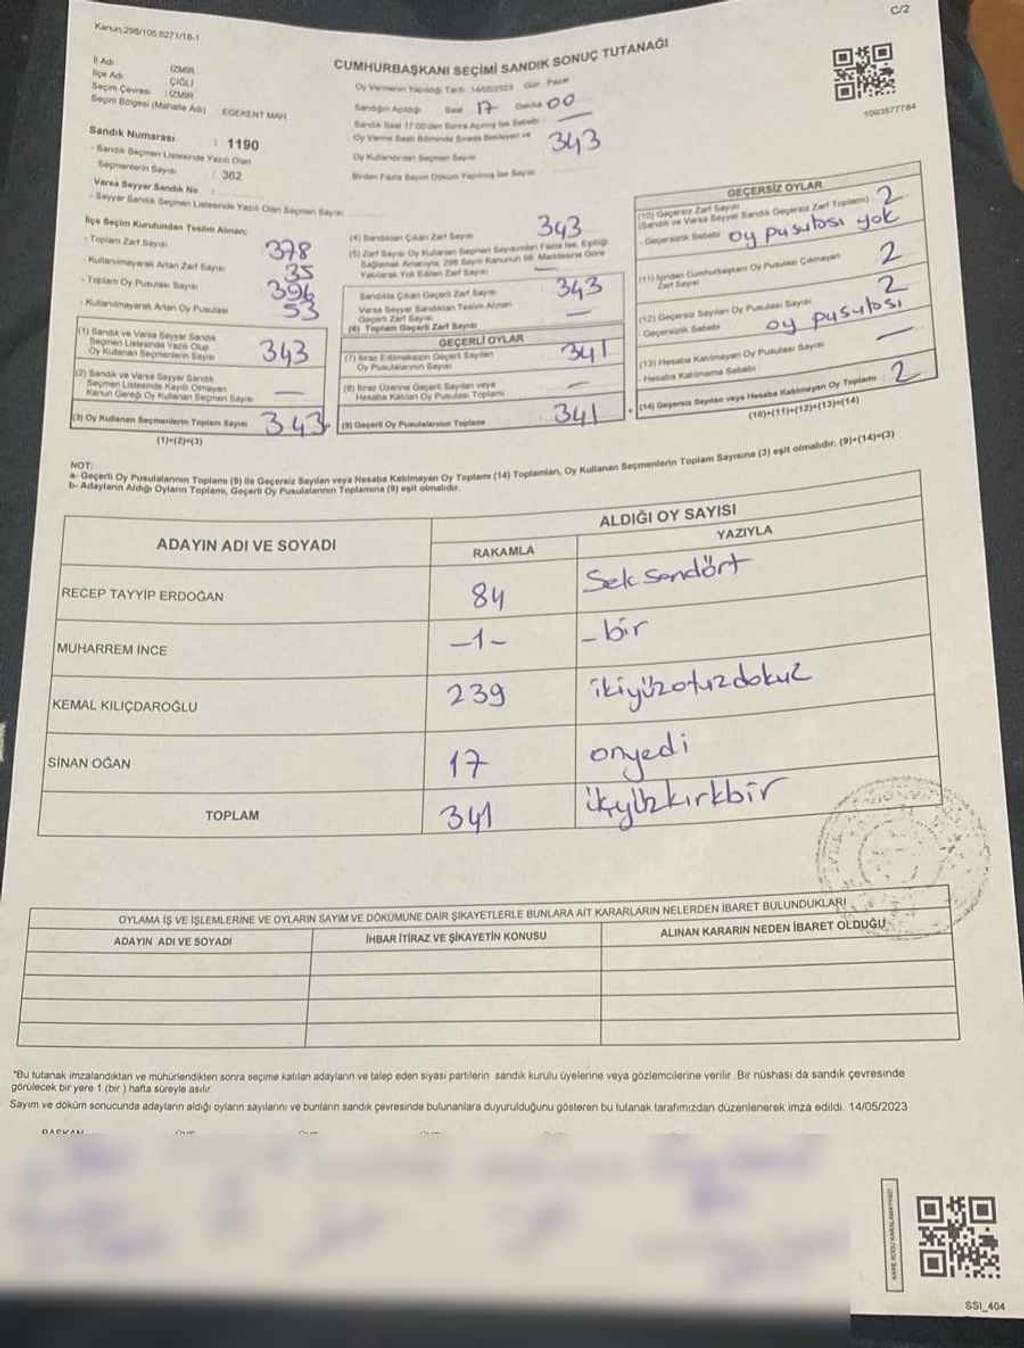 C/2
Kanun:298/105 6271/18-1
CUMHURBAŞKANI SEÇİMİ SANDIK SONUÇ TUTANAĞI
İl Adı : İZMİR
İlçe Adı : ÇİĞLİ
Seçim Çevresi : İZMİR
Seçim Bölgesi (Mahalle Adı) : EGEKENT MAH.
Oy Vermenin Yapıldığı Tarih: 14/05/2023 Gün: Pazar
Sandığın Açıldığı Saat 17 Dakika 00
Sandık Numarası : 1190
- Sandık Seçmen Listesinde Yazılı Olan
Seçmenlerin Sayısı : 382
Varsa Seyyar Sandık No :
- Seyyar Sandık Seçmen Listesinde Yazılı Olan Seçmen Sayısı
Oy Kullandırılan Seçmen Sayısı
343
Birden Fazla Sayım Döküm Yapılmış İse Sayısı
İlçe Seçim Kurulundan Teslim Alınan;
- Toplam Zarf Sayısı 378
- Kullanılmayarak Artan Zarf Sayısı 35
- Toplam Oy Pusulası Sayısı 396
- Kullanılmayarak Artan Oy Pusulası 53
(1) Sandık ve Varsa Seyyar Sandık
Seçmen Listesinde Yazılı Olup
Oy Kullanan Seçmenlerin Sayısı 343
(2) Sandık ve Varsa Seyyar Sandık
Seçmen Listesinde Kaydı Olmayan
Kanun Gereği Oy Kullanan Seçmen Sayısı —
(3) Oy Kullanan Seçmenlerin Toplam Sayısı 343
(1)+(2)=(3)
(4) Sandıktan Çıkan Zarf Sayısı 343
(5) Zarf Sayısı Oy Kullanan Seçmen Sayısından Fazla İse, Eşitliği
Sağlamak Amacıyla, 298 Sayılı Kanunun 98. Maddesine Göre
Yakılarak Yok Edilen Zarf Sayısı —
Sandıkta Çıkan Geçerli Zarf Sayısı 343
Varsa Seyyar Sandıktan Teslim Alınan
Geçerli Zarf Sayısı —
(6) Toplam Geçerli Zarf Sayısı
GEÇERLİ OYLAR
(7) İtiraz Edilmeksizin Geçerli Sayılan
Oy Pusulalarının Sayısı 341
(8) İtiraz Üzerine Geçerli Sayılan veya
Hesaba Katılan Oy Pusulası Toplamı —
(9) Geçerli Oy Pusulalarının Toplamı 341
GEÇERSİZ OYLAR
(10) Geçersiz Zarf Sayısı
(Sandık ve Varsa Seyyar Sandık Geçersiz Zarf Toplamı) 2
- Geçersizlik Sebebi oy pusulası yok
(11) İçinden Cumhurbaşkanı Oy Pusulası Çıkmayan
Zarf Sayısı 2
(12) Geçersiz Sayılan Oy Pusulası Sayısı 2
Geçersizlik Sebebi oy pusulası
(13) Hesaba Katılmayan Oy Pusulası Sayısı —
- Hesaba Katılmama Sebebi
(14) Geçersiz Sayılan veya Hesaba Katılmayan Oy Toplamı 2
(10)+(11)+(12)+(13)=(14)
NOT:
a- Geçerli Oy Pusulalarının Toplamı (9) ile Geçersiz Sayılan veya Hesaba Katılmayan Oy Toplamı (14) Toplamları, Oy Kullanan Seçmenlerin Toplam Sayısına (3) eşit olmalıdır. (9)+(14)=(3)
b- Adayların Aldığı Oyların Toplamı, Geçerli Oy Pusulalarının Toplamına (9) eşit olmalıdır.
ADAYIN ADI VE SOYADI
ALDIĞI OY SAYISI
RAKAMLA YAZIYLA
RECEP TAYYİP ERDOĞAN 84 Seksendört
MUHARREM İNCE -1- -bir
KEMAL KILIÇDAROĞLU 239 ikiyüzotuzdokuz
SİNAN OĞAN 17 onyedi
TOPLAM 341 üçyüzkırkbir
OYLAMA İŞ VE İŞLEMLERİNE VE OYLARIN SAYIM VE DÖKÜMÜNE DAİR ŞİKAYETLERLE BUNLARA AİT KARARLARIN NELERDEN İBARET BULUNDUKLARI
ADAYIN ADI VE SOYADI İHBAR İTİRAZ VE ŞİKAYETİN KONUSU ALINAN KARARIN NEDEN İBARET OLDUĞU
"Bu tutanak imzalandıktan ve mühürlendikten sonra seçime katılan adayların ve talep eden siyasi partilerin sandık kurulu üyelerine veya gözlemcilerine verilir. Bir nüshası da sandık çevresinde
görülecek bir yere 1 (bir) hafta süreyle asılır.
Sayım ve döküm sonucunda adayların aldığı oyların sayılarını ve bunların sandık çevresinde bulunanlara duyurulduğunu gösteren bu tutanak tarafımızdan düzenlenerek imza edildi. 14/05/2023
BAŞKAN
KARE KODU KARALAMAYINIZ!
SSI_404